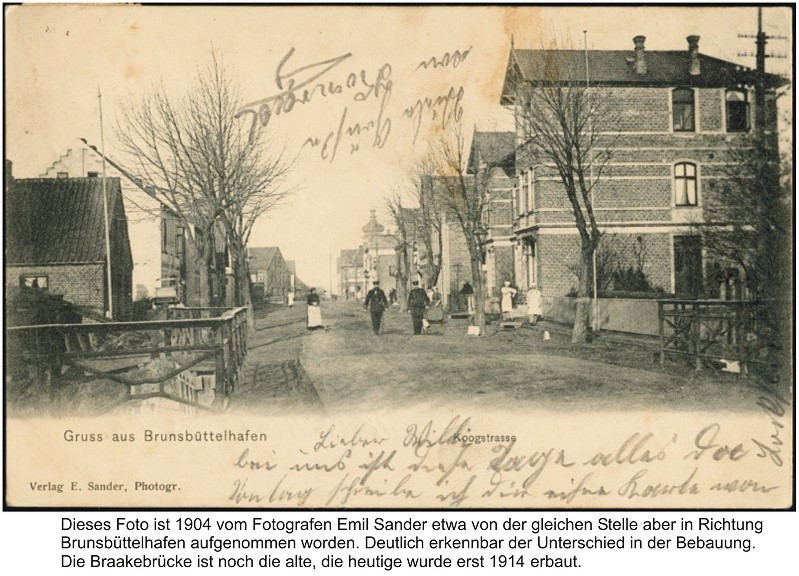 Gruss aus Brunsbüttelhafen
Koogstrasse
Lieber Willi
bei uns ist diese Tage alles
schreibe ich dir eine Karte
Verlag E. Sander, Photogr.
Dieses Foto ist 1904 vom Fotografen Emil Sander etwa von der gleichen Stelle aber in Richtung
Brunsbüttelhafen aufgenommen worden. Deutlich erkennbar der Unterschied in der Bebauung.
Die Braakebrücke ist noch die alte, die heutige wurde erst 1914 erbaut.